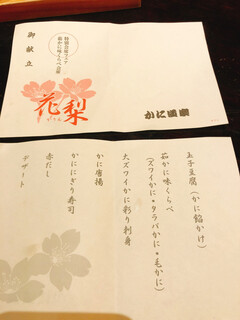 御献立
茹かに味くらべ会席
花梨
かに道楽
玉子豆腐(かに餡かけ)
茹かに味くらべ
(ズワイかに・タラバかに・毛かに)
大ズワイかに彩り刺身
かに唐揚
かににぎり寿司
赤だし
デザート